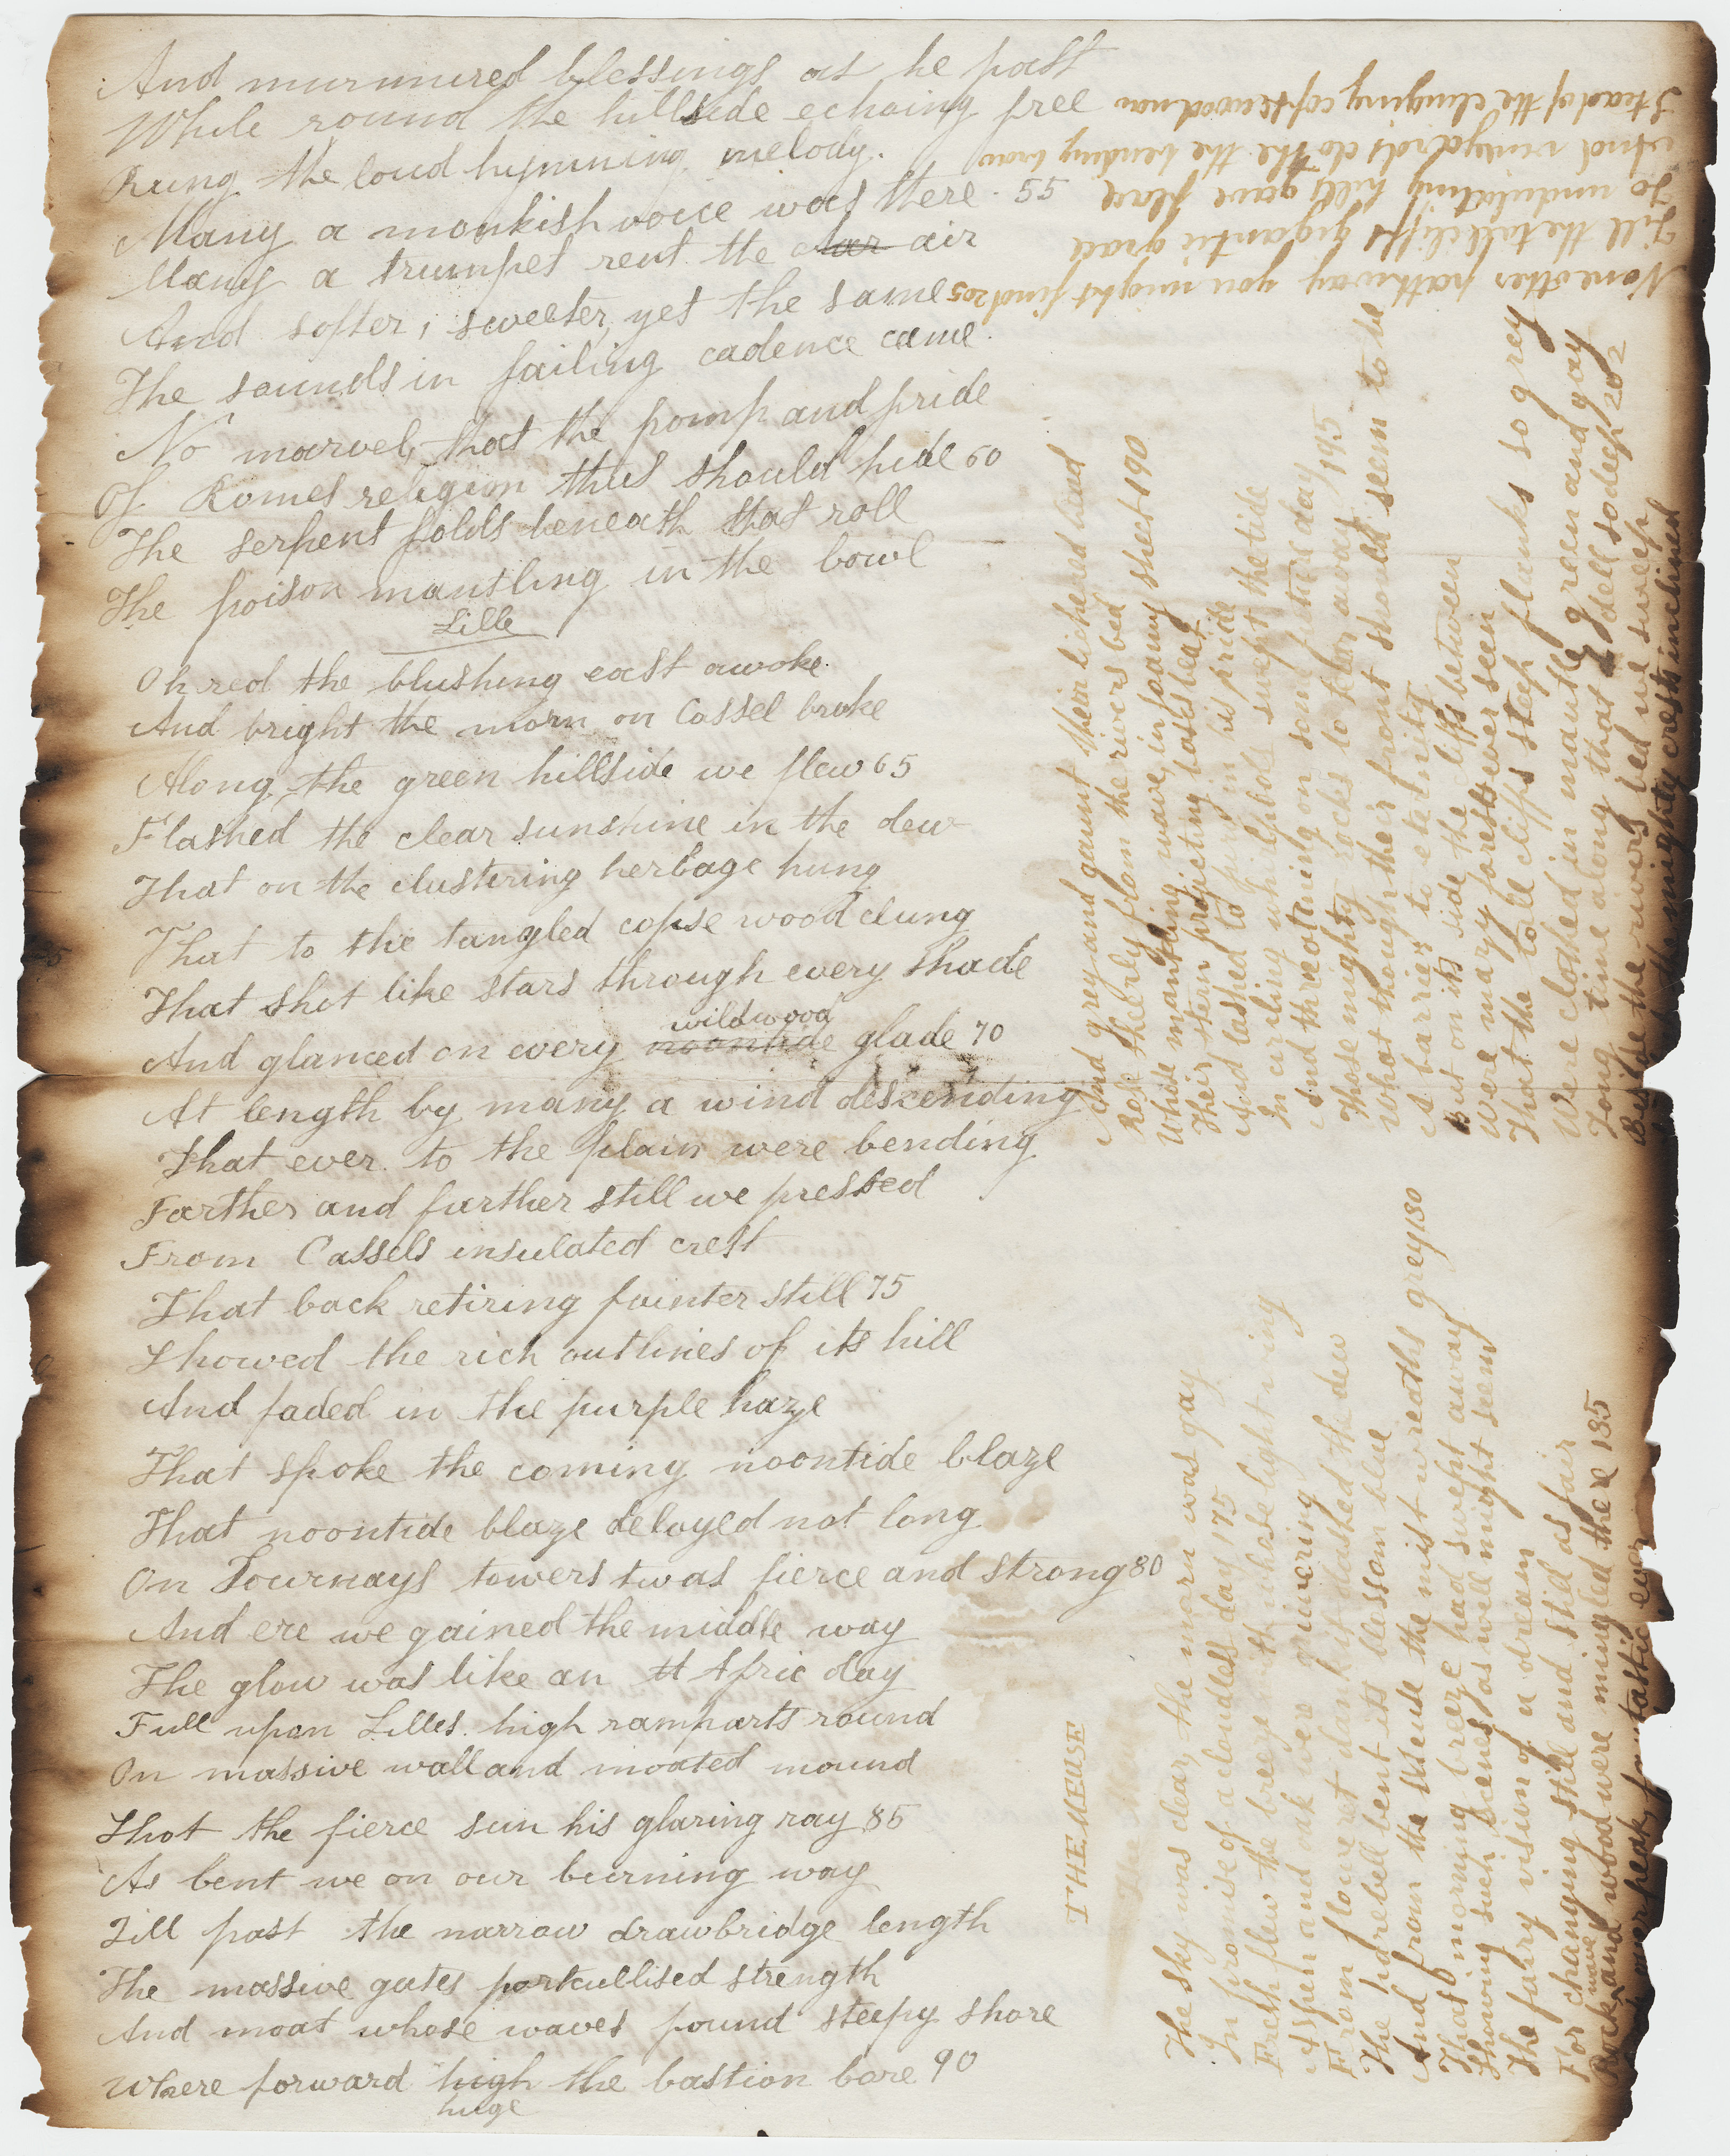 And murmured blessings as he past
While round the hillside echoing free
Rung the loud hymning melody.
Many a monkish voice was there. 55
Many a trumpet rent the clear air
And softer, sweeter, yet the same
The sounds in failing cadence came.
No marvel, that the pomp and pride
Of Romes religion thus should hide 60
The serpent folds beneath that roll
The poison mantling in the bowl
Lille
Oh red the blushing east awoke.
And bright the morn on Cassel broke
Along the green hillside we flew 65
Flashed the clear sunshine in the dew
That on the clustering herbage hung
That to the tangled copse wood clung
That shot like stars through every shade
wildwood
And glanced on every noontide glade 70
At length by many a wind descending
That ever to the plain were bending
Farther and further still we pressed
From Cassels insulated crest
That back retiring fainter still 75
Showed the rich outlines of its hill
And faded in the purple haze
That spoke the coming noontide blaze
That noontide blaze delayed not long
On Tournays towers twas fierce and strong 80
And ere we gained the middle way
The glow was like an Afric day
Full upon Lilles high ramparts round
On massive wall and moated mound
Shot the fierce sun his glaring ray 85
As bent we on our burning way
Till past the narrow drawbridge length
The massive gates portcullised strength
And moat whose waves found steepy shore
Where forward high the bastion bore 90
huge
THE MEUSE
The sky was clear, the morn was gay
In promise of a cloudless day 175
Fresh flew the breeze with whose light wing
Aspen and oak were quivering
From flowret dark hit dashed the dew
The harebell bent its blossom blue
And from the Meuse the mist wreaths grey 180
That morning breeze had swept away
Showing such scenes as well might seem
The fairy vision of a dream
For changing still and still as fair
wave
Rock and wood were mingled there 185
over peak fantastic ever
And grey and gaunt their lichened head
Rose sheerly from the rivers bed
While mantling wave, in foamy sheet 190
Their stern projecting bases beat
And lashed to fury in his pride
In circling whirlpools swept the tide
And threatening on some future day
Those mighty rocks to tear away 195
What though their front should seem to be
A barrier to eternity
But on its side the cliffs between
Were mazy forests ever seen
That the tall cliffs steep flanks so grey
Were clothed in mantle green and gay
Long time along that dell so deep 202
Beside the rivers bed we sweep
the mighty crests inclined
None other pathway you might find 205
Till the tall cliffs gigantic grace
To undulating hills gave place
And vineyards clothe the bending brow
Stead of the clinging copsewood now